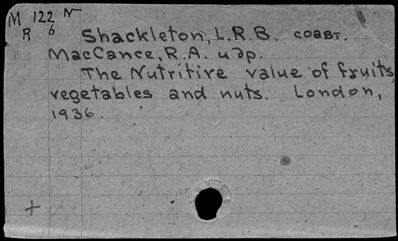 M 122 N
R 6
Shackleton, L.R.B. соавт.
MacCance, R.A. идр.
The Nutritive value of fruits,
vegetables and nuts. London,
1936.
+